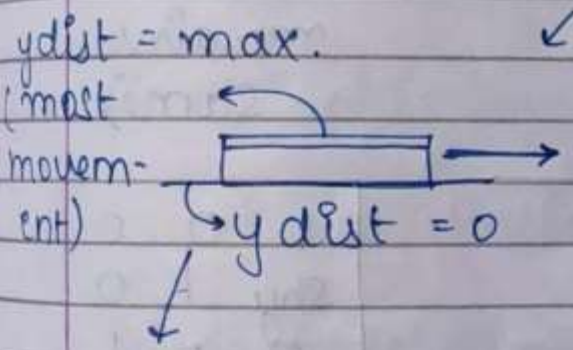 ydist = max.
(most
movem-
ent)
y dist = 0